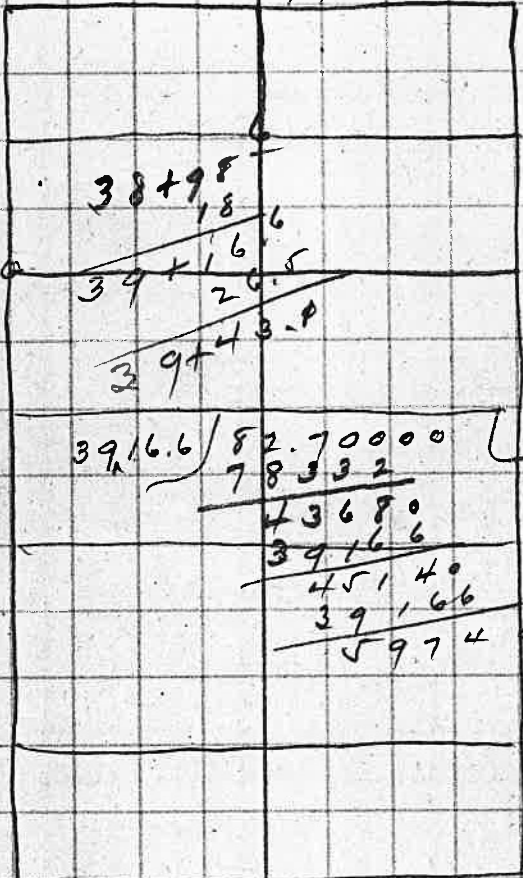 6
38+98
18.6
39+16.6
26.5
39+43.1
3916.6 ) 82.70000 (
78332
43680
39166
45140
39166
5974